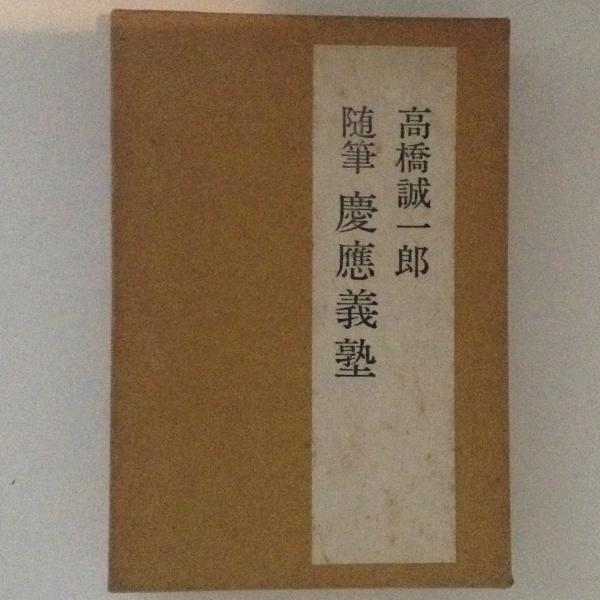 高橋誠一郎
随筆 慶應義塾